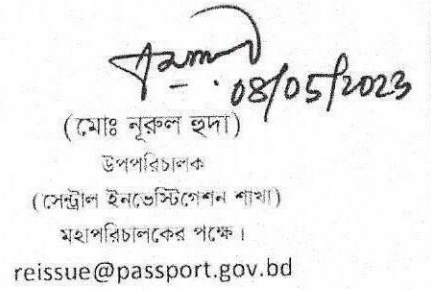 08/05/2023
(মোঃ নূরুল হুদা)
উপপরিচালক
(সেন্ট্রাল ইনভেস্টিগেশন শাখা)
মহাপরিচালকের পক্ষে।
reissue@passport.gov.bd